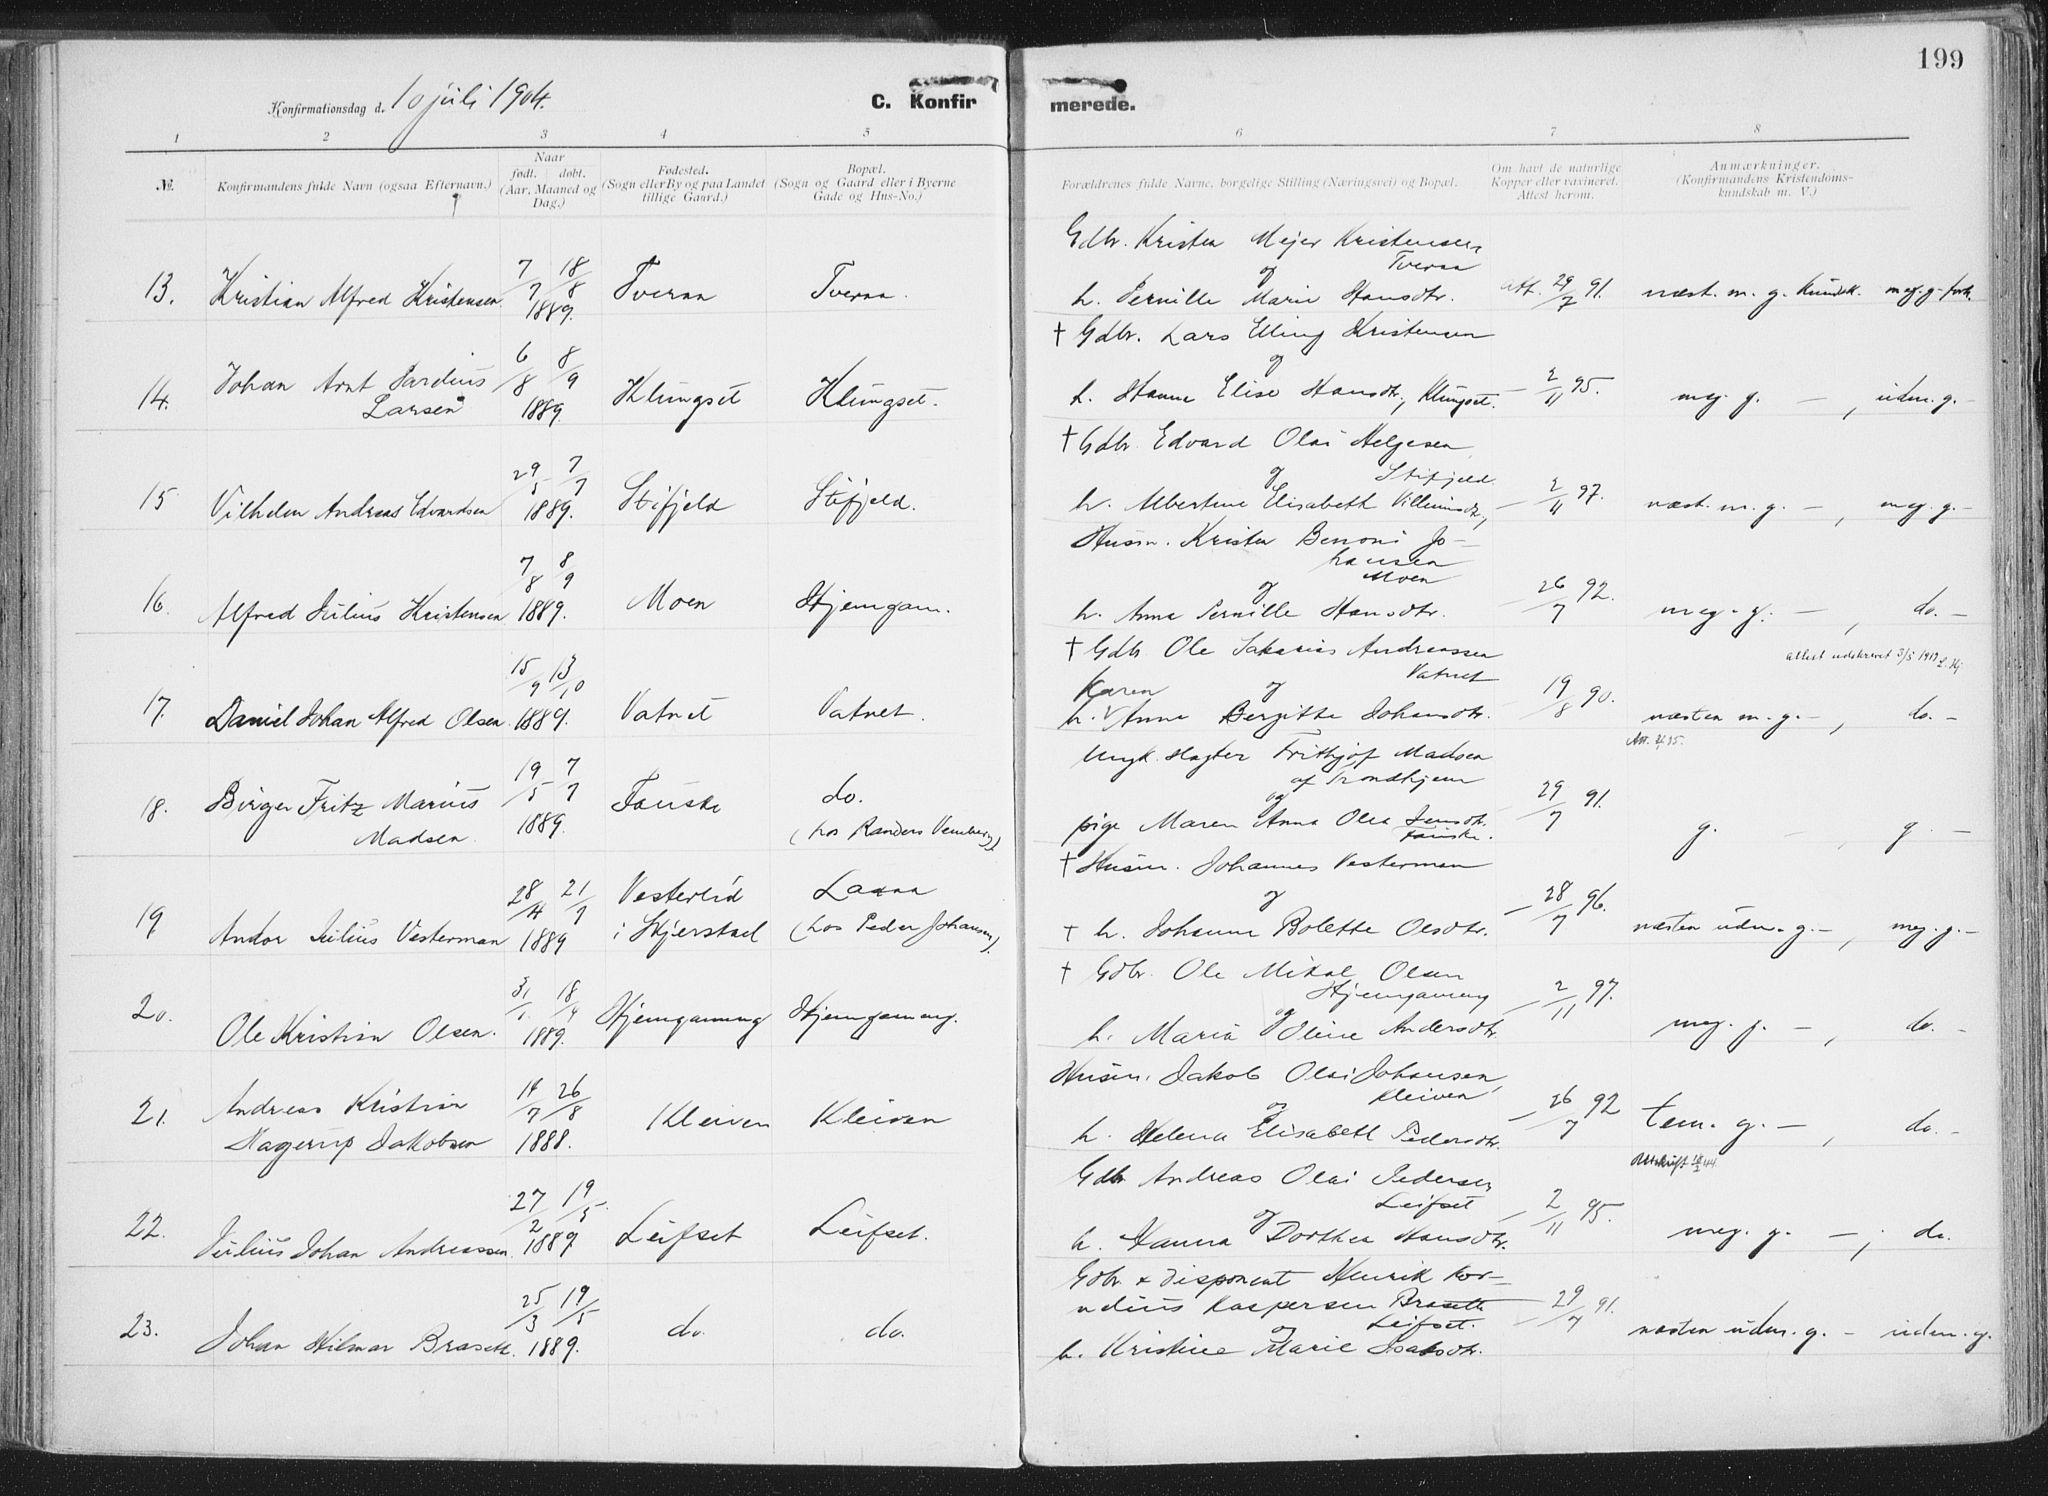 199
Konfirmationsdag d. 10 juli 1904.
C. Konfirmerede.
1 2 3 4 5 6 7 8
№.
Konfirmandens fulde Navn (ogsaa Efternavn.)
Naar
født. døbt.
(Aar, Maaned og
Dag.)
Fødested.
(Sogn eller By og paa Landet
tillige Gaard.)
Bopæl.
(Sogn og Gaard eller i Byerne
Gade og Hus-No.)
Forældrenes fulde Navne, borgelige Stilling (Næringsvei) og Bopæl.
Om havt de naturlige
Kopper eller vaxineret.
Attest herom.
Anmærkninger.
(Konfirmandens Kristendoms-
kundskab m. V.)
Gdbr. Kristen Mejer Kristensen,
Tveraa
og
13. Kristian Alfred Kristensen 7/7 18/8 1889. Tveraa Tveraa. h. Pernille Marie Hansdtr. Att. 29/7 91. næst. m. g. Kundsk. meg. g. forh.
† Gdbr. Lars Elling Kristensen
og
14. Johan Arnt Pardius
Larsen 6/8 8/9 1889. Klungset Klungset. h. Hanna Elise Hansdtr., Klungset. — 2/11 95. meg. g. — , udm. g. —
† Gdbr. Edvard Olai Helgesen
og Stifjeld
15 Vilhelm Andreas Edvardsen 29/5 7/7 1889. Stifjeld Stifjeld. h. Albertine Elisabeth Villumsdtr., — 2/11 97. næst. m. g. — , meg. g. —
Husm. Kristen Benoni Jo-
hansen
Moen
og
16. Alfred Julius Kristensen 7/8 8/9 1889. Moen Hjemgam. h. Anna Pernille Hansdtr. 26/7 92. meg. g. — , do. —
† Gdbr. Ole Sakarias Andreassen
Vatnet
attest udskrevet 3/5 1917
Karen og
17. Daniel Johan Alfred Olsen 15/9 13/10 1889. Vatnet Vatnet. h. Anna Bergitte Johansdtr. 19/8 90. næsten m. g. — , do. —
Ungk. Slagter Frithjof Madsen
af Trondhjem
og
18. Birger Fritz Marius
Madsen 19/5 7/7 1889. Fauske do.
(hos Randers Venberg). pige Maren Anna Olea Jensdtr.
Fauske. 29/7 91. g. — , g. —
† Husm. Johannes Vesterman
og
19 Andor Julius Vesterman 28/4 21/7 1889 Vesterlid
i Skjerstad Laxaa
(hos Peder Johansen). † h. Johanna Bolette Olsdtr. — 28/7 96. næsten udm. g. — , meg. g. —
† Gdbr. Ole Mikal Olsen
Hjemgammng
og
20. Ole Kristian Olsen. 31/1 18/4 1889. Hjemgamung Hjemgamung. h. Maria Oline Andersdtr. — 2/11 97. meg. g. — , do. —
Husm. Jakob Olai Johansen,
Kleiven
og
21. Andreas Kristian
Hagerup Jakobsen 14/7 26/8 1888. Kleiven Kleiven h. Helena Elisabeth Pedersdtr. — 26/7 92 tem. g. — , do. —
Utskrift 18/2 44.
Gdbr Andreas Olai Pedersen
Leifset
og
22. Julius Johan Andreassen. 27/2 19/5 1889 Leifset Leifset. h. Hanna Dorthea Hansdtr. — 2/11 95. meg. g. — , do.
Gdbr. & disponent Henrik Kor-
nelius Kaspersen Brasetk
Leifset.
og
23. Johan Hilmar Brasetk. 25/3 19/5 1889. do. do. h. Kristine Marie Isaksdtr. — 29/7 91. næsten udm. g. — udm. g.